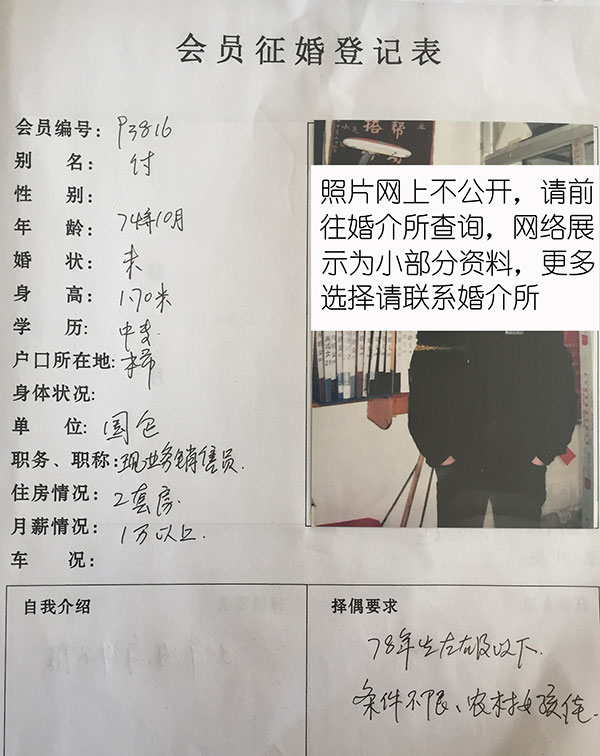 会员征婚登记表
会员编号: P3816
别 名: 付
性 别:
年 龄: 74年10月
婚 状: 未
身 高: 1.70米
学 历: 中专
户口所在地: 本市
身体状况:
单 位: 国企
职务、职称: 现业务销售员.
住房情况: 2套房.
月薪情况: 1万以上.
车 况:
照片网上不公开，请前
往婚介所查询，网络展
示为小部分资料，更多
选择请联系婚介所
自我介绍
择偶要求
78年生左右及以下.
条件不限、农村女孩